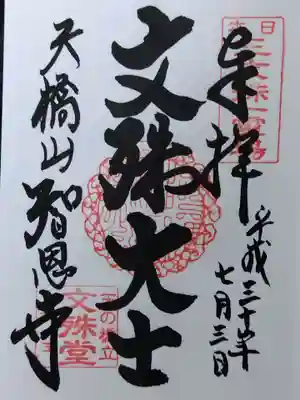 奉拝
平成三十年
七月三日
文殊大士
天橋山智恩寺
天の橋立
文殊堂